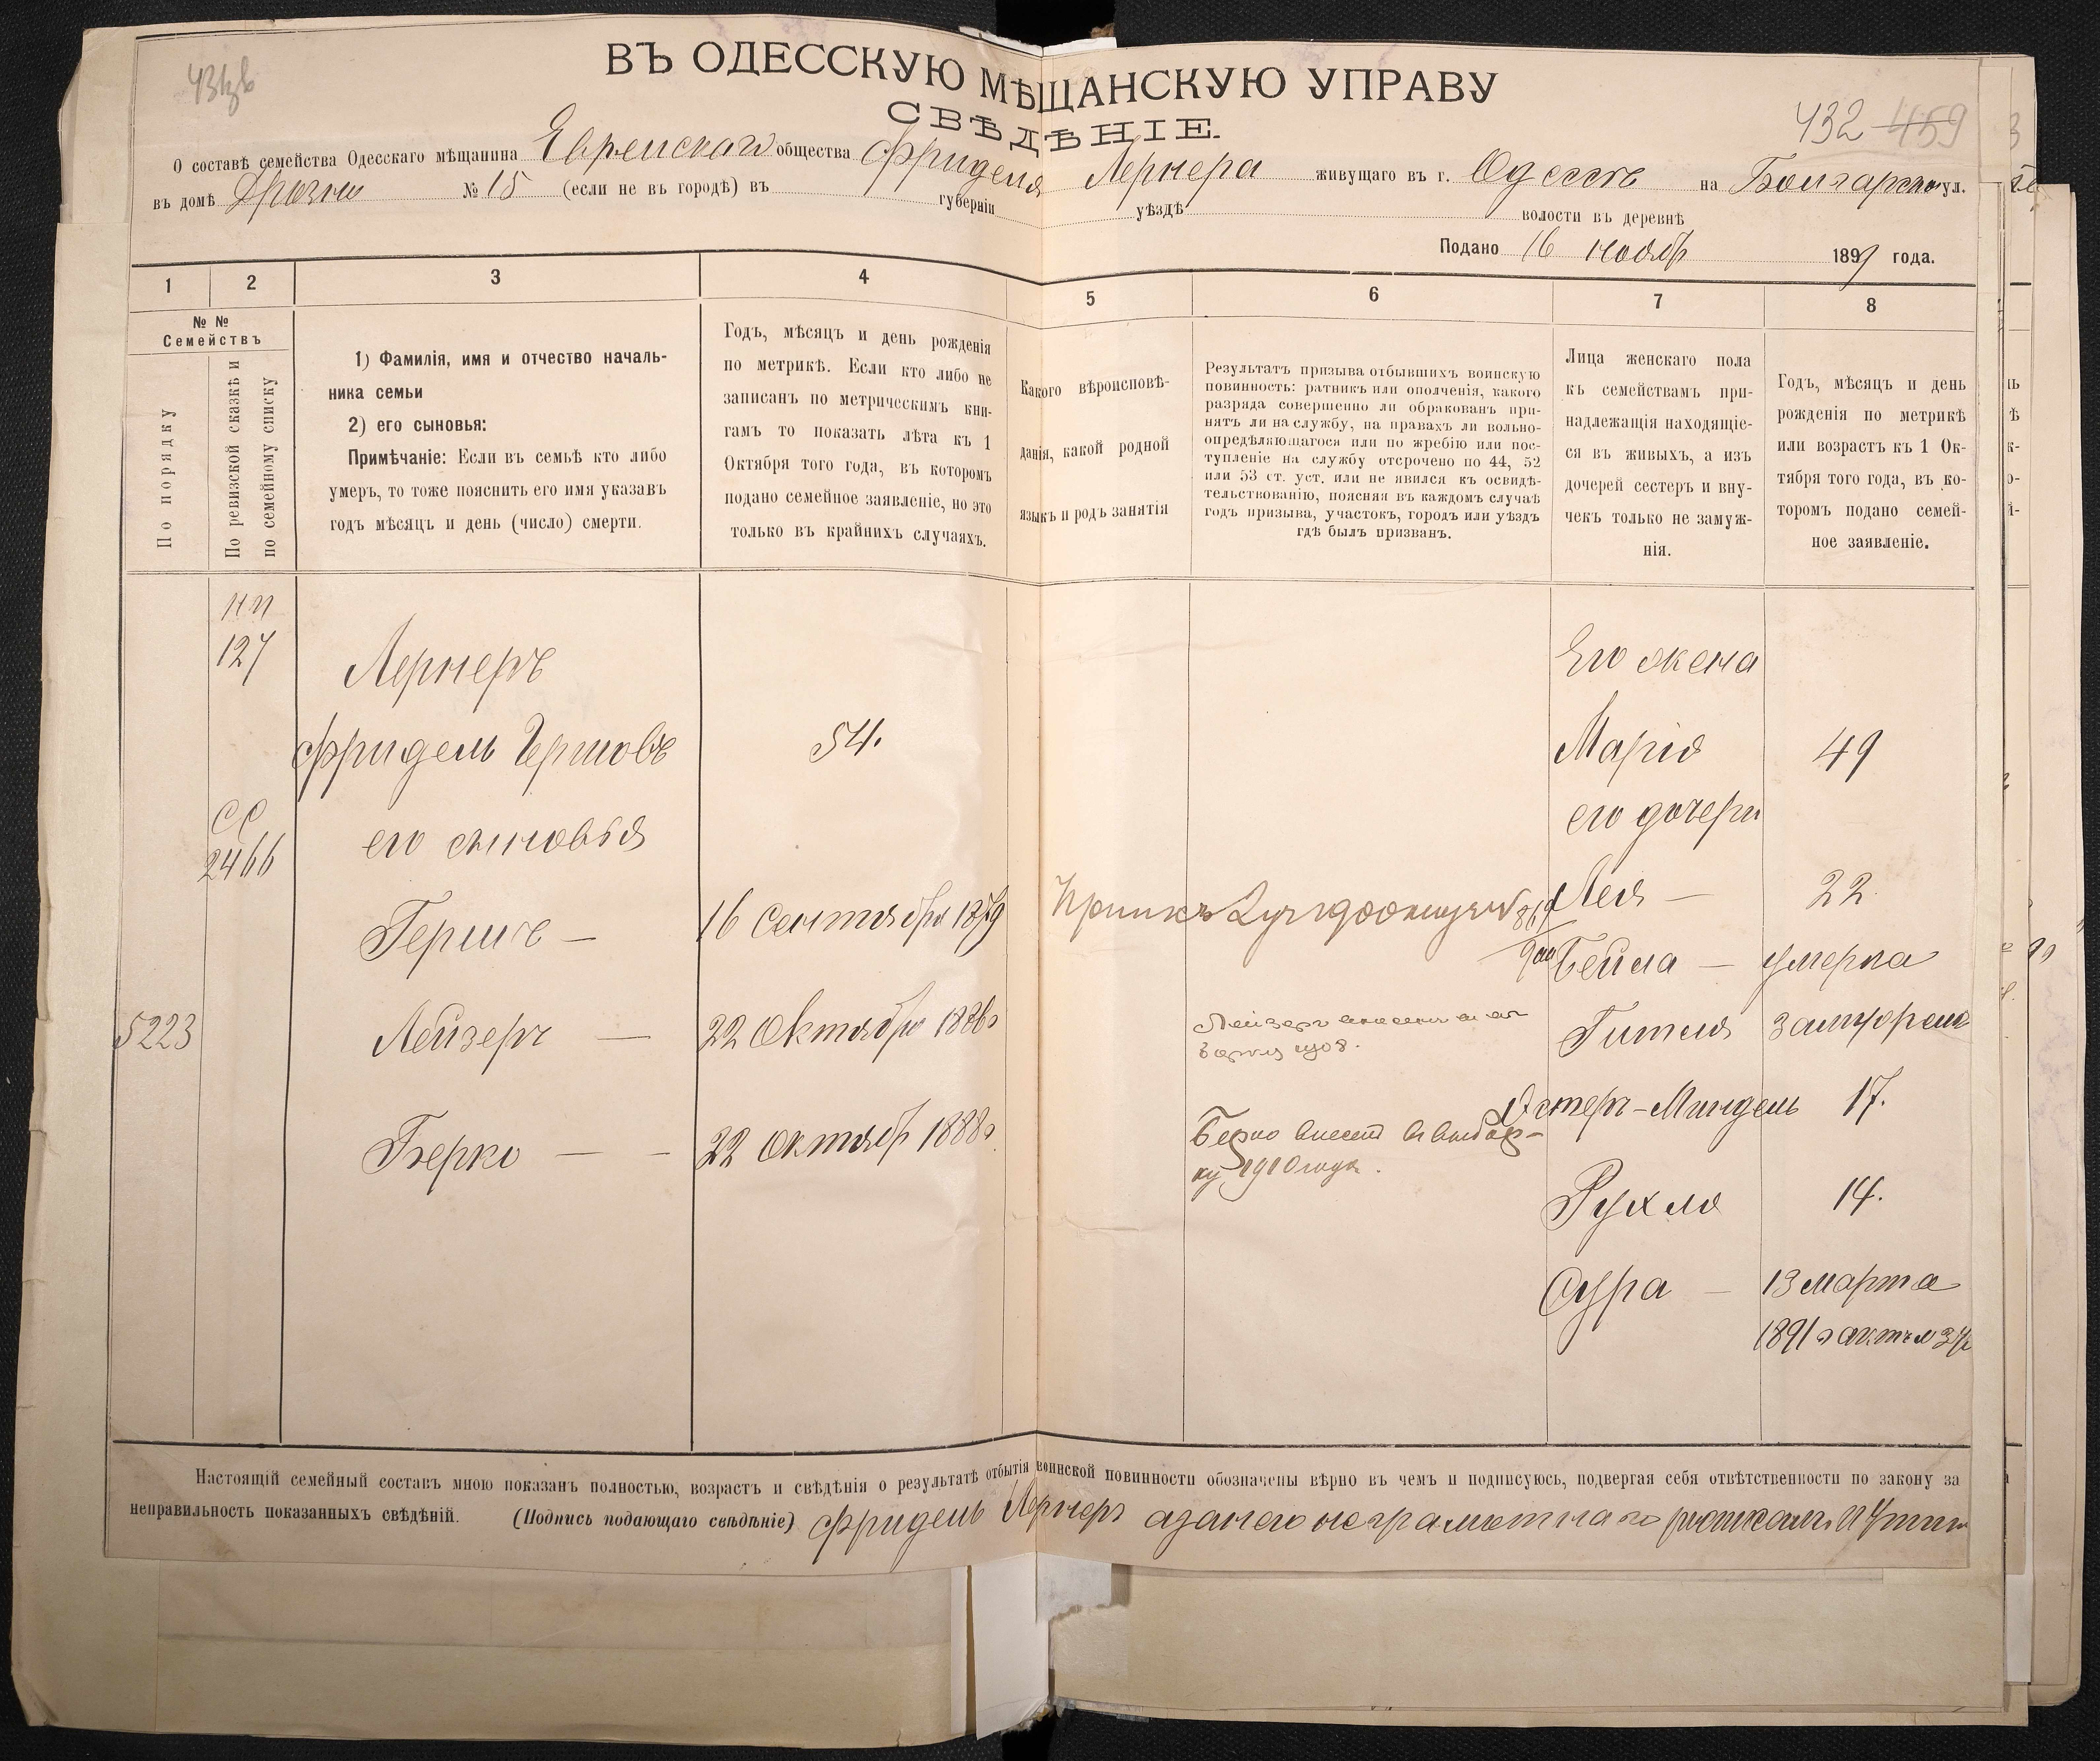 43
432 459
ВЪ ОДЕССКУЮ МѢЩАНСКУЮ УПРАВУ
СВѢДѢНІЕ.
О составѣ семейства Одесскаго мѣщанина Еврейскаго общества Фриделя Лернера живущаго въ г. Одессѣ на Болгарской ул.
въ домѣ № 15 (если не въ городѣ) въ губерніи уѣздѣ волости въ деревнѣ
Подано 16 ноябр 1899 года.
1 2 3 4 5 6 7 8
№ №
Семействъ
По порядку
По ревизской сказкѣ и
по семейному списку
1) Фамилія, имя и отчество началь-
ника семьи
2) его сыновья:
Примѣчаніе: Если въ семьѣ кто либо
умеръ, то тоже пояснить его имя указавъ
годъ мѣсяцъ и день (число) смерти.
Годъ, мѣсяцъ и день рожденія
по метрикѣ. Если кто либо не
записанъ по метрическимъ кни-
гамъ то показать лѣта къ 1
Октября того года, въ которомъ
подано семейное заявленіе, но это
только въ крайнихъ случаяхъ.
Какого вѣроисповѣ-
данія, какой родной
языкъ и родъ занятія
Результатъ призыва отбывшихъ воинскую
повинность: ратникъ или ополченія, какого
разряда совершенно ли обракованъ при-
нятъ ли на службу, на правахъ ли вольно-
опредѣляющагося или по жребію или пос-
тупленіе на службу отсрочено по 44, 52
или 53 ст. уст. или не явился къ освидѣ-
тельствованію, поясняя въ каждомъ случаѣ
годъ призыва, участокъ, городъ или уѣздъ
гдѣ былъ призванъ.
Лица женскаго пола
къ семействамъ при-
надлежащія находящіе-
ся въ живыхъ, а изъ
дочерей сестеръ и вну-
чекъ только не замуж-
нія.
Годъ, мѣсяцъ и день
рожденія по метрикѣ
или возрастъ къ 1 Ок-
тября того года, въ ко-
торомъ подано семей-
ное заявленіе.
нп
127
Лернеръ
Его жена
Фридель Гершовъ 54. Марія 49
сс
2466
его сыновья
его дочери
Гершъ — 16 Сентября 1879 Лея — 22
Бейла — умерла
5223 Лейзеръ — 22 Октября 1886г Гитля замужем
Эстеръ-Миндель 17.
Берко — — 22 Октябр 1888г Берко внесен в выбор-
ку 1910 года.
Рухля 14.
Сура — 13 марта
1891 г
Настоящій семейный составъ мною показанъ полностью, возрастъ и свѣдѣнія о результатѣ отбытія воинской повинности обозначены вѣрно въ чемъ и подписуюсь, подвергая себя отвѣтственности по закону за
неправильность показанныхъ свѣдѣній. (Подпись подающаго свѣдѣніе) Фридель Лернеръ а за него неграмотнаго